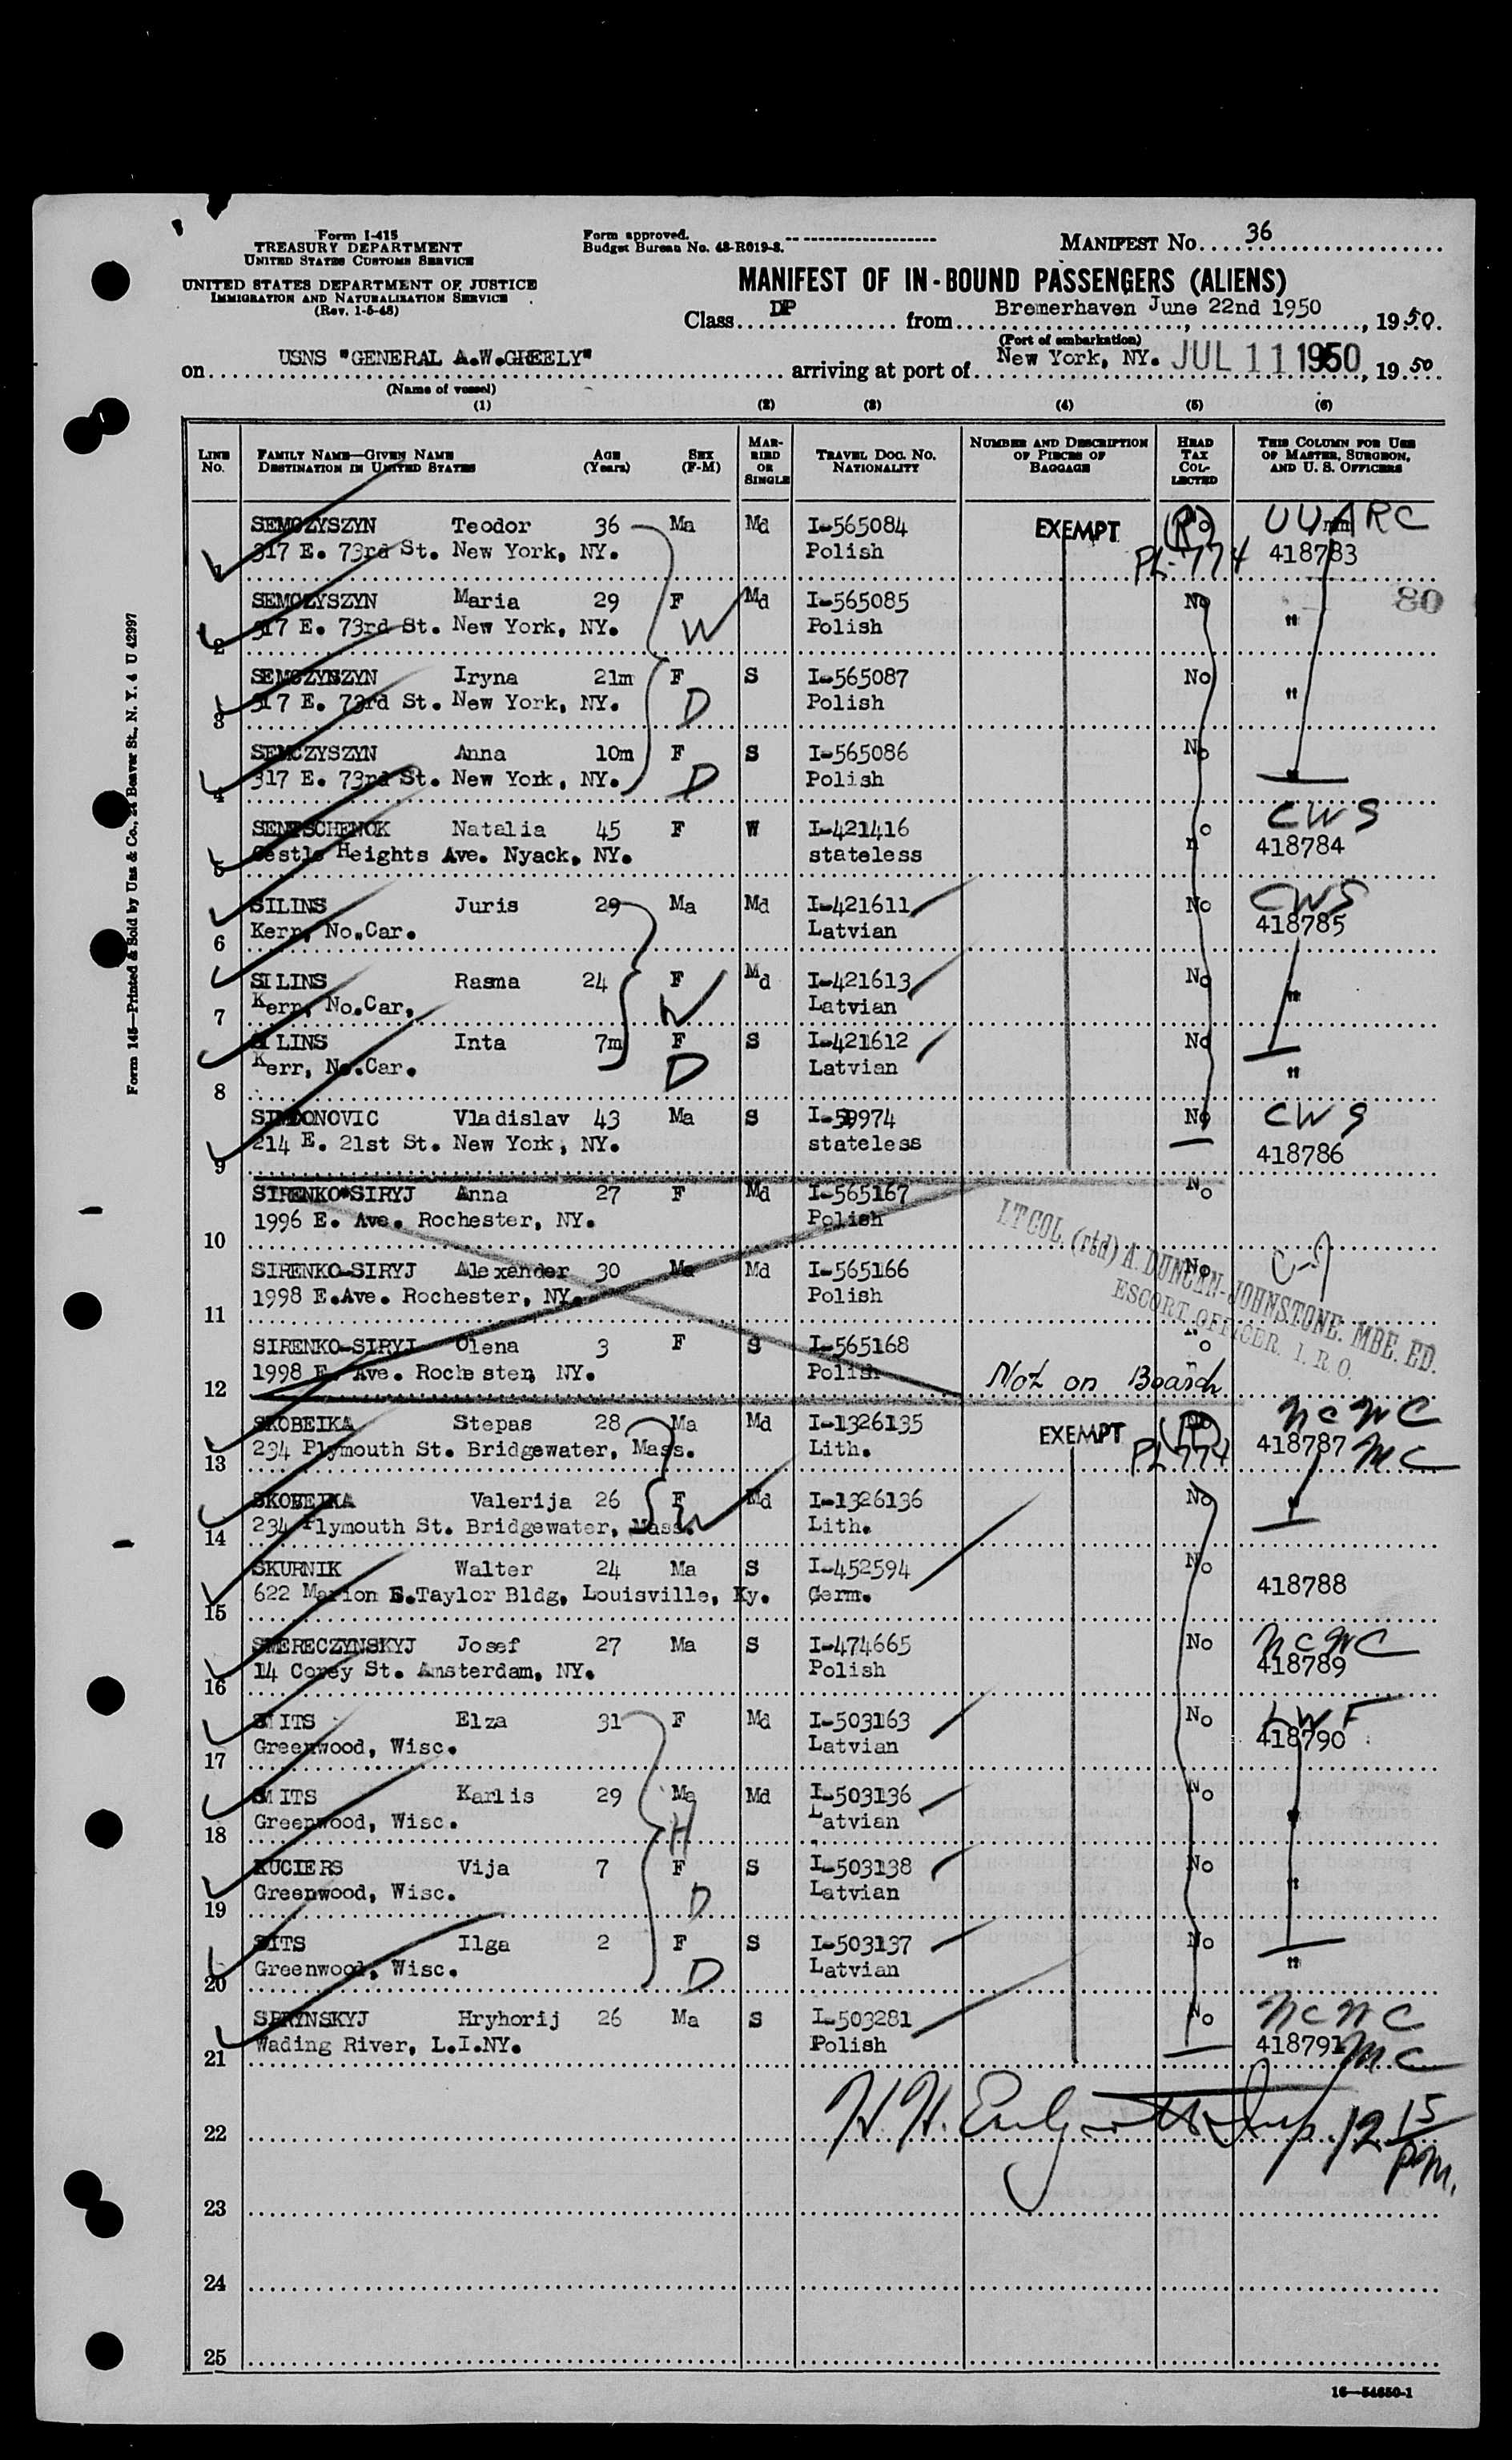 Form I-415
TREASURY DEPARTMENT
UNITED STATES CUSTOMS SERVICE
UNITED STATES DEPARTMENT OF JUSTICE
IMMIGRATION AND NATURALIZATION SERVICE
(Rev. 1-5-48)
Form approved.
Budget Bureau No. 43-R019-3.
MANIFEST No. 36
MANIFEST OF IN-BOUND PASSENGERS (ALIENS)
Class DP from Bremerhaven June 22nd 1950, 1950.
(Port of embarkation)
on USNS "GENERAL A.W.GREELY" arriving at port of New York, NY. JUL 11 1950, 1950
(Name of vessel)
(1) (2) (3) (4) (5) (6)
LINE No. FAMILY NAME—GIVEN NAME DESTINATION IN UNITED STATES AGE (Years) SEX (F-M) MARRIED OR SINGLE TRAVEL DOC. NO. NATIONALITY NUMBER AND DESCRIPTION OF PIECES OF BAGGAGE HEAD TAX COLLECTED THIS COLUMN FOR USE OF MASTER, SURGEON, AND U. S. OFFICERS
SEMCZYSZYN Teodor 36 Ma Md I-565084 EXEMPT (R) No UUARC
1 317 E. 73rd St. New York, NY. Polish PL-774 418783
SEMCZYSZYN Maria 29 F Md I-565085 No 80
2 317 E. 73rd St. New York, NY. W Polish "
SEMCZYSZYN Iryna 21m F S I-565087 No
3 317 E. 73rd St. New York, NY. D Polish "
SEMCZYSZYN Anna 10m F S I-565086 No
4 317 E. 73rd St. New York, NY. D Polish "
Natalia 45 F W I-421416 no CWS
5 Heights Ave. Nyack, NY. stateless 418784
SILINS Juris 29 Ma Md I-421611 No CWS
6 Kerr, No.Car. Latvian 418785
SILINS Rasma 24 F Md I-421613 No
7 Kerr, No.Car, W Latvian "
SILINS Inta 7m F S I-421612 No
8 Kerr, No.Car. D Latvian "
Vladislav 43 Ma S No CWS
9 214 E. 21st St. New York, NY. stateless 418786
SIRENKO-SIRYJ Anna 27 F Md I-565167 No
10 1996 E. Ave. Rochester, NY. Polish
SIRENKO-SIRYJ Alexander 30 Ma Md I-565166 No
11 1998 E.Ave. Rochester, NY. Polish
LTCOL. (rtd) A. DUNCAN-JOHNSTONE. MBE. ED.
ESCORT OFFICER. I.R.O.
SIRENKO-SIRYJ Olena 3 F S I-565168 no
12 1998 E. Ave. Rochester, NY. Polish Not on Board
SKOBEIKA Stepas 28 Ma Md I-1326135 EXEMPT (R) NCWC
13 234 Plymouth St. Bridgewater, Mass. Lith. PL 774 418787 MC
SKOBEIKA Valerija 26 F Md I-1326136 No
14 234 Plymouth St. Bridgewater, Mass. W Lith. "
SKURNIK Walter 24 Ma S I-452594 No
15 622 Marion E.Taylor Bldg, Louisville, Ky. Germ. 418788
SMERECZYNSKYJ Josef 27 Ma S I-474665 No NCWC
16 14 Corey St. Amsterdam, NY. Polish 418789
SMITS Elza 31 F Md I-503163 No LWF
17 Greenwood, Wisc. Latvian 418790
SMITS Karlis 29 Ma Md I-503136 No
18 Greenwood, Wisc. H Latvian "
KUCIERS Vija 7 F S I-503138 No
19 Greenwood, Wisc. D Latvian "
SMITS Ilga 2 F S I-503137 No
20 Greenwood, Wisc. D Latvian "
SPRYNSKYJ Hryhorij 26 Ma S I-503281 No NCWC
21 Wading River, L.I.NY. Polish 418791 MC
22 H.H. Insp. 12 15 PM.
23
24
25
16—54650-1
Form 145—Printed & Sold by Unz & Co., 24 Beaver St., N. Y. 4 U 42997